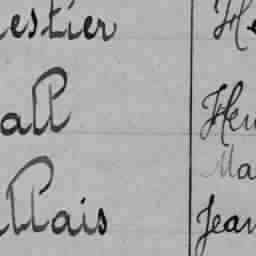 estier He
all Hen
Ma
llais Jean